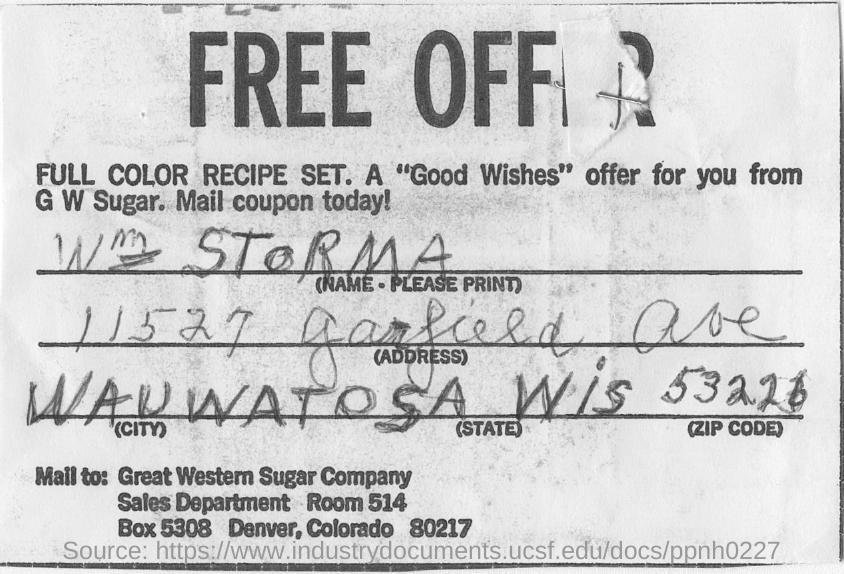 FREE OFFER
FULL COLOR RECIPE SET. A "Good Wishes" offer for you from
G W Sugar. Mail coupon today!
Wm STORMA
(NAME - PLEASE PRINT)
11527 Garfield Ave
(ADDRESS)
WAUWATOSA Wis 53226
(CITY) (STATE) (ZIP CODE)
Mail to: Great Western Sugar Company
Sales Department Room 514
Box 5308 Denver, Colorado 80217
Source: https://www.industrydocuments.ucsf.edu/docs/ppnh0227